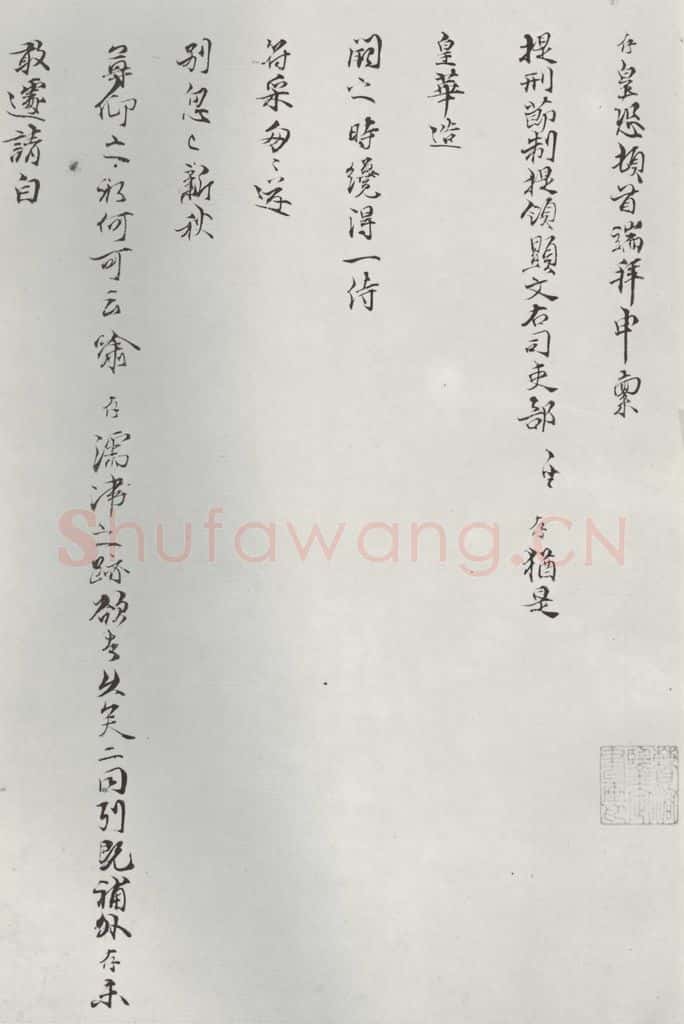 存皇恐頓首端拜申稟
提刑節制提領顯文右司吏部 存猶是
皇華造
闕之時纔得一侍
符采匆匆遂
別忽忽新秋
尊仰之私何可云喻存濡滯之跡欲去久矣二同列既補外存未
敢遽請自
Shufawang.CN